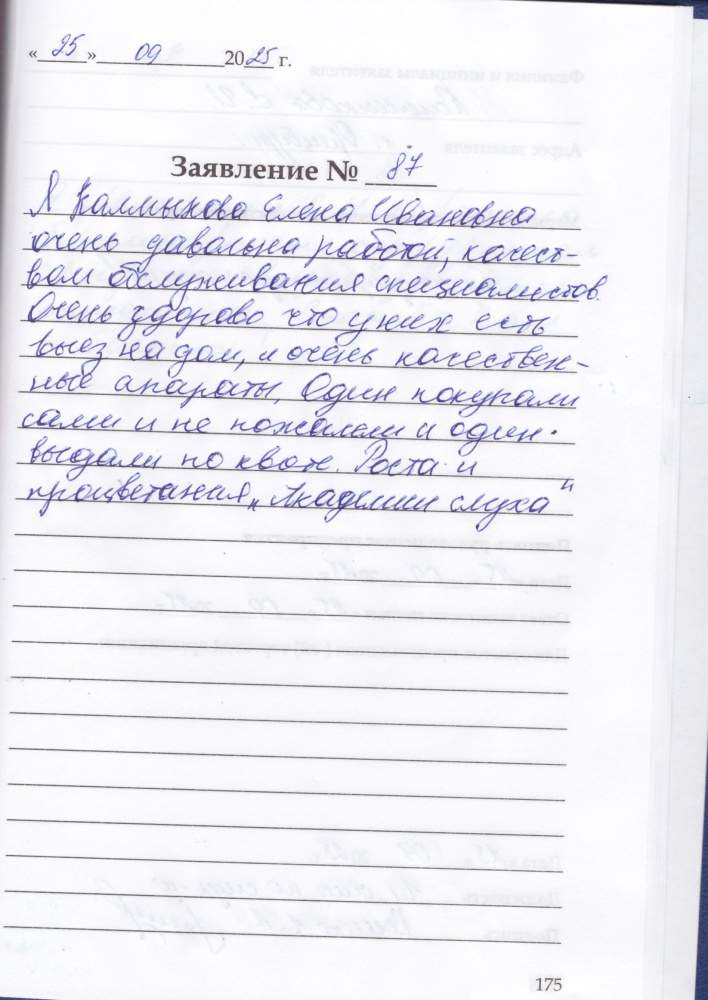 «25» 09 2025 г.
Заявление № 87
Я Калмыкова Елена Ивановна
очень давольна работой, качест-
вом обслуживания специалистов.
Очень здорово что у них есть
выез на дом, и очень качествен-
ные апараты. Один покупали
сами и не пожалели и один
выдали по квоте. Роста и
процветания „Академии слуха"
175